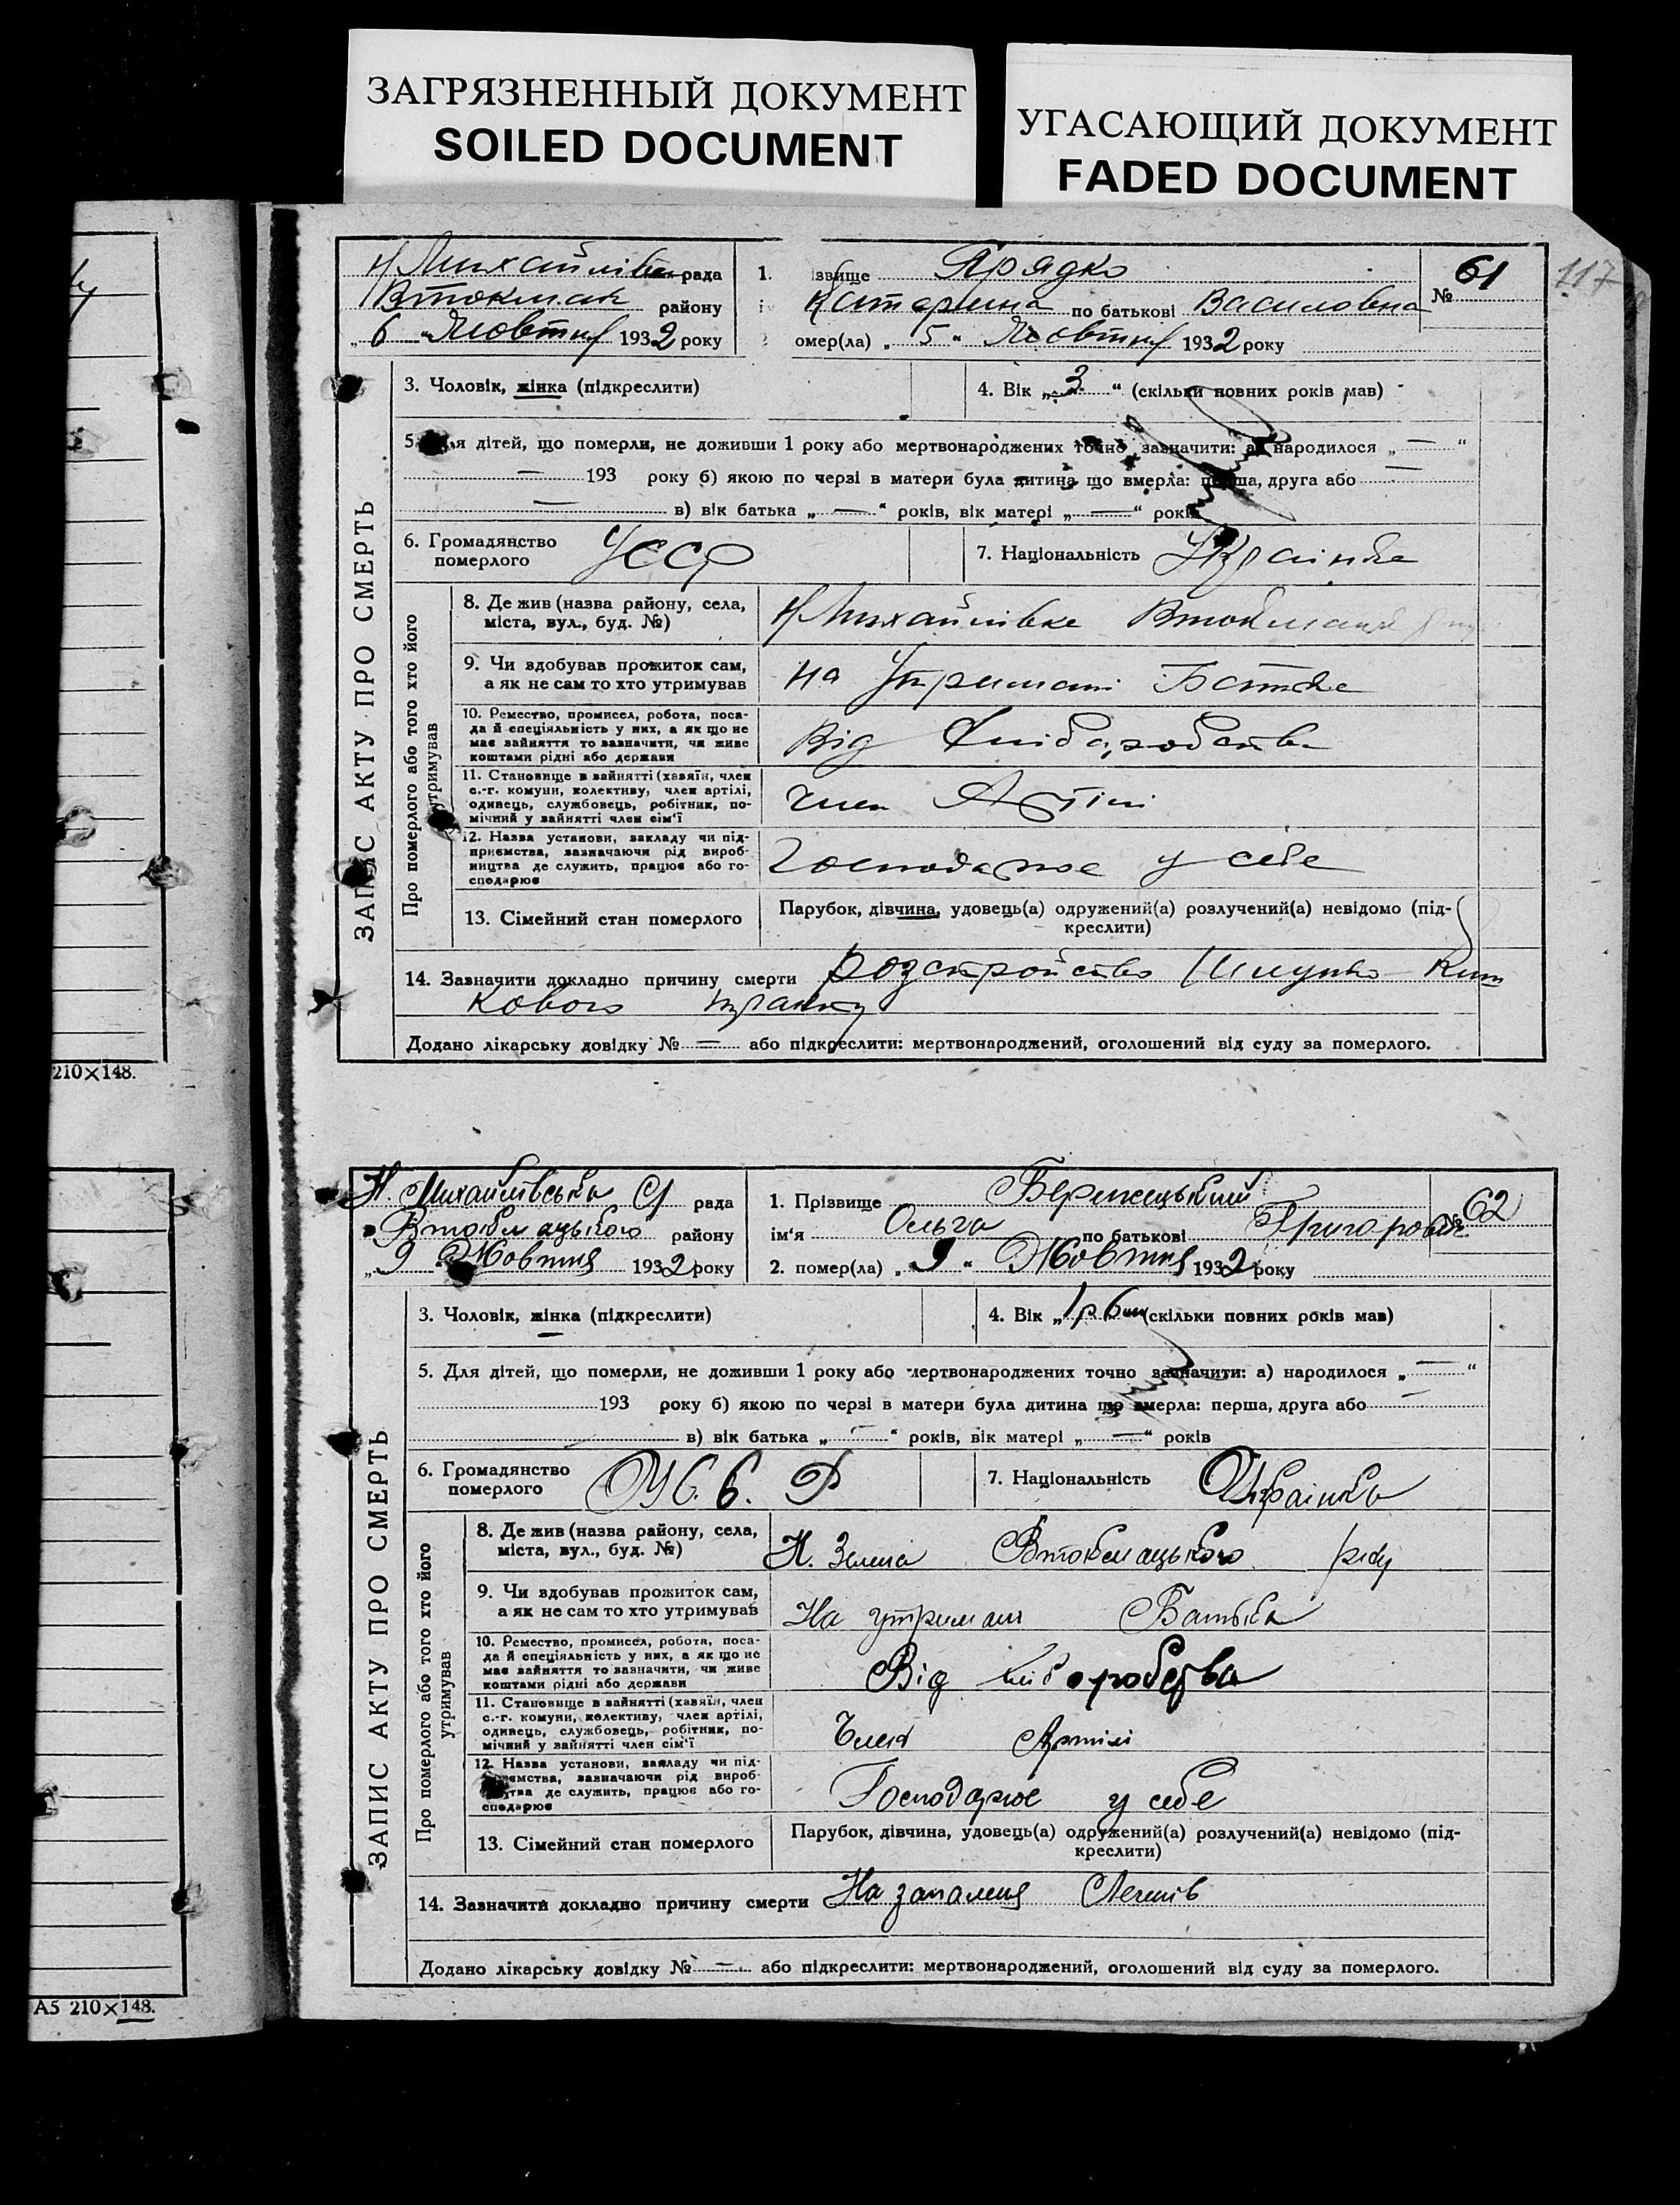 ЗАГРЯЗНЕННЫЙ ДОКУМЕНТ
SOILED DOCUMENT
УГАСАЮЩИЙ ДОКУМЕНТ
FADED DOCUMENT
117
210×148.
А5 210×148.
ЗАПИС АКТУ ПРО СМЕРТЬ
Н Михайлівська рада
Втокмак району
„6“ Жовтня 1932 року
1. ізвище Ярядко
і Катарина по батькові Василовна
омер(ла) „5“ Жовтня 1932 року
№ 61
3. Чоловік, жінка (підкреслити)
4. Вік „3“ (скільки повних років мав)
5. я дітей, що померли, не доживши 1 року або мертвонароджених точно зазначити: а) народилося „—“
— 193 року б) якою по черзі в матери була дитина що вмерла: перша, друга або —
— в) вік батька „—“ років, вік матері „—“ років
6. Громадянство померлого УССР
7. Національність Українка
Про померлого або того хто його утримував
8. Де жив (назва району, села,
міста, вул., буд. №)
Н Михайлівке
9. Чи здобував прожиток сам,
а як не сам то хто утримував
на Утримані Батька
10. Ремество, промисел, робота, поса-
да й спеціяльність у них, а як що не
має зайняття то зазначити, чи живе
коштами рідні або держави
Від Хліборобства
11. Становище в зайнятті (хазяїн, член
с.-г. комуни, колективу, член артілі,
одинець, службовець, робітник, по-
мічний у зайнятті член сім'ї
член Артілі
12. Назва установи, закладу чи під-
приємства, зазначаючи рід вироб-
ництва де служить, працює або го-
сподарює
Господарює у себе
13. Сімейний стан померлого
Парубок, дівчина, удовець(а) одружений(а) розлучений(а) невідомо (під-
креслити)
14. Зазначити докладно причину смерти розстройство Шлунко-Киш
кового тракту
Додано лікарську довідку № — або підкреслити: мертвонароджений, оголошений від суду за померлого.
ЗАПИС АКТУ ПРО СМЕРТЬ
Н. Михайлівська С/ рада
Втокмацького району
„9“ Жовтня 1932 року
1. Прізвище
ім'я Ольга по батькові Григоровна
2. помер(ла) „9“ Жовтня 1932 року
№ 62
3. Чоловік, жінка (підкреслити)
4. Вік „1 р 6 м (скільки повних років мав)
5. Для дітей, що померли, не доживши 1 року або мертвонароджених точно зазначити: а) народилося „—“
193 року б) якою по черзі в матери була дитина що вмерла: перша, друга або —
в) вік батька „—“ років, вік матері „—“ років
6. Громадянство померлого У С. С. Р
7. Національність Українка
Про померлого або того хто його утримував
8. Де жив (назва району, села,
міста, вул., буд. №)
Н. Втокмацького р-ну
9. Чи здобував прожиток сам,
а як не сам то хто утримував
На утримані Батька
10. Ремество, промисел, робота, поса-
да й спеціяльність у них, а як що не
має зайняття то зазначити, чи живе
коштами рідні або держави
Від хліборобства
11. Становище в зайнятті (хазяїн, член
с.-г. комуни, колективу, член артілі,
одинець, службовець, робітник, по-
мічний у зайнятті член сім'ї
Член Артілі
12. Назва установи, закладу чи під-
ємства, зазначаючи рід вироб-
тва де служить, працює або го-
сподарює
Господарює у себе
13. Сімейний стан померлого
Парубок, дівчина, удовець(а) одружений(а) розлучений(а) невідомо (під-
креслити)
14. Зазначити докладно причину смерти На запаленя Легенів
Додано лікарську довідку № — або підкреслити: мертвонароджений, оголошений від суду за померлого.